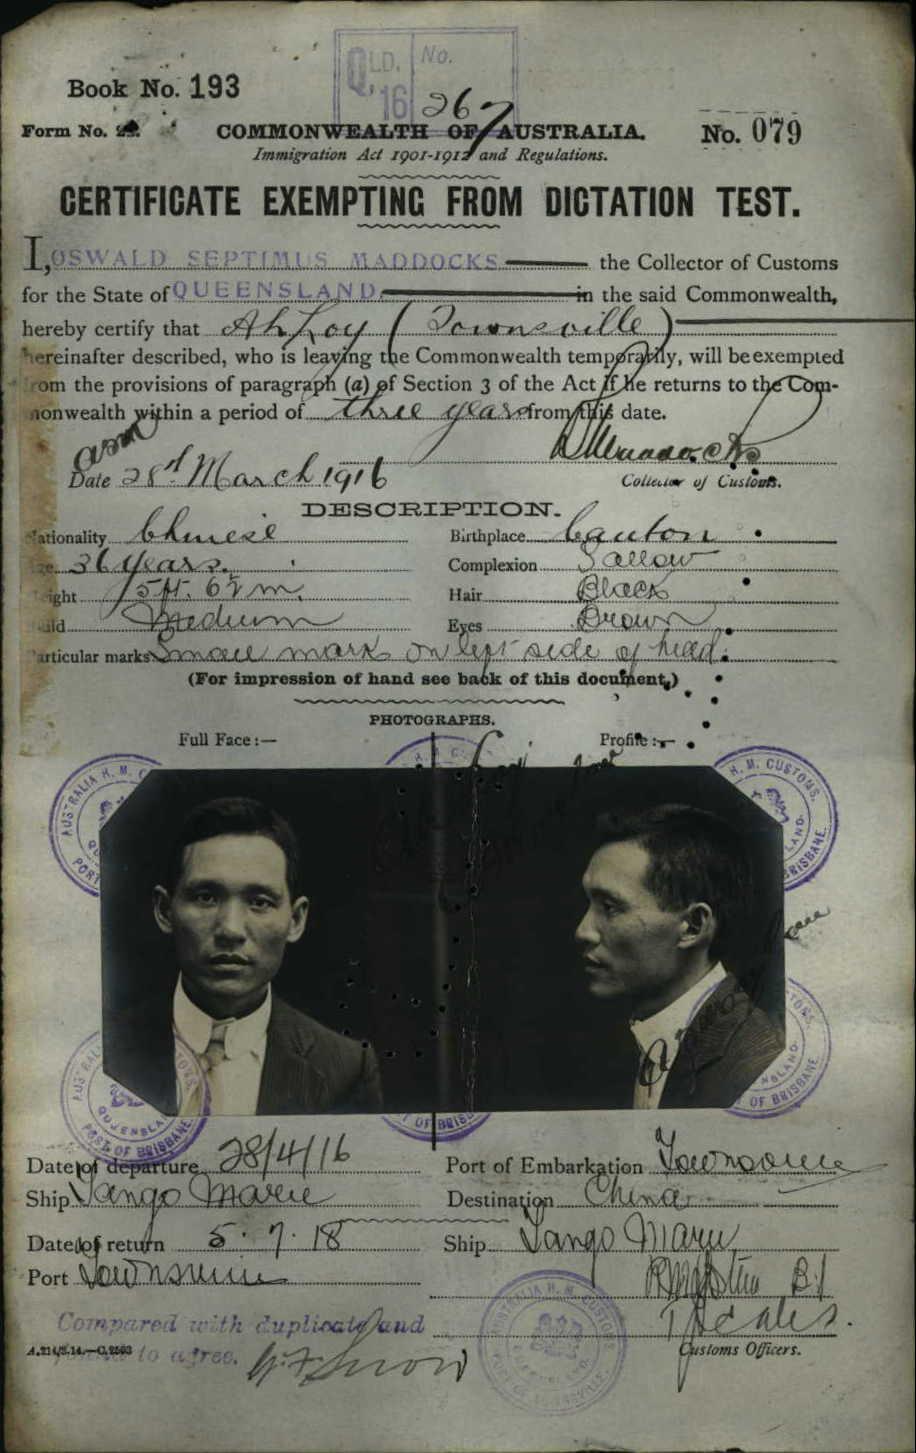 QLD. No.
Q. 16
Book No. 193
267
Form No.
COMMONWEALTH OF AUSTRALIA.
No. 079
Immigration Act 1901-1912 and Regulations.
CERTIFICATE EXEMPTING FROM DICTATION TEST.
I, OSWALD SEPTIMUS MADDOCKS the Collector of Customs
for the State of QUEENSLAND. in the said Commonwealth,
hereby certify that Ah Loy (Townsville)
hereinafter described, who is leaving the Commonwealth temporarily, will be exempted
from the provisions of paragraph (a) of Section 3 of the Act if he returns to the Com-
monwealth within a period of three years from this date.
Date 28th March 1916
Collector of Customs.
DESCRIPTION.
Nationality Chinese Birthplace Canton
Age 36 years. Complexion Sallow
Height 5 ft. 6½ in. Hair Black
Build Medium Eyes Brown
Particular marks Small mark on left side of head.
(For impression of hand see back of this document.)
PHOTOGRAPHS.
Full Face:— Profile:—
AUSTRALIA H. M. CUSTOMS. QUEENSLAND. PORT OF BRISBANE
Date of departure 28/4/16 Port of Embarkation Townsville
Ship Tango Maru Destination China
Date of return 5.7.18 Ship Tango Maru
Port Townsville
Compared with duplicate and
to agree.
A.214/8.14.—C.2563
Customs Officers.